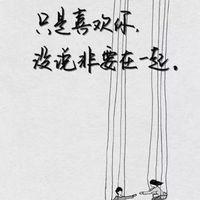 只是喜欢你，
没说非要在一起。